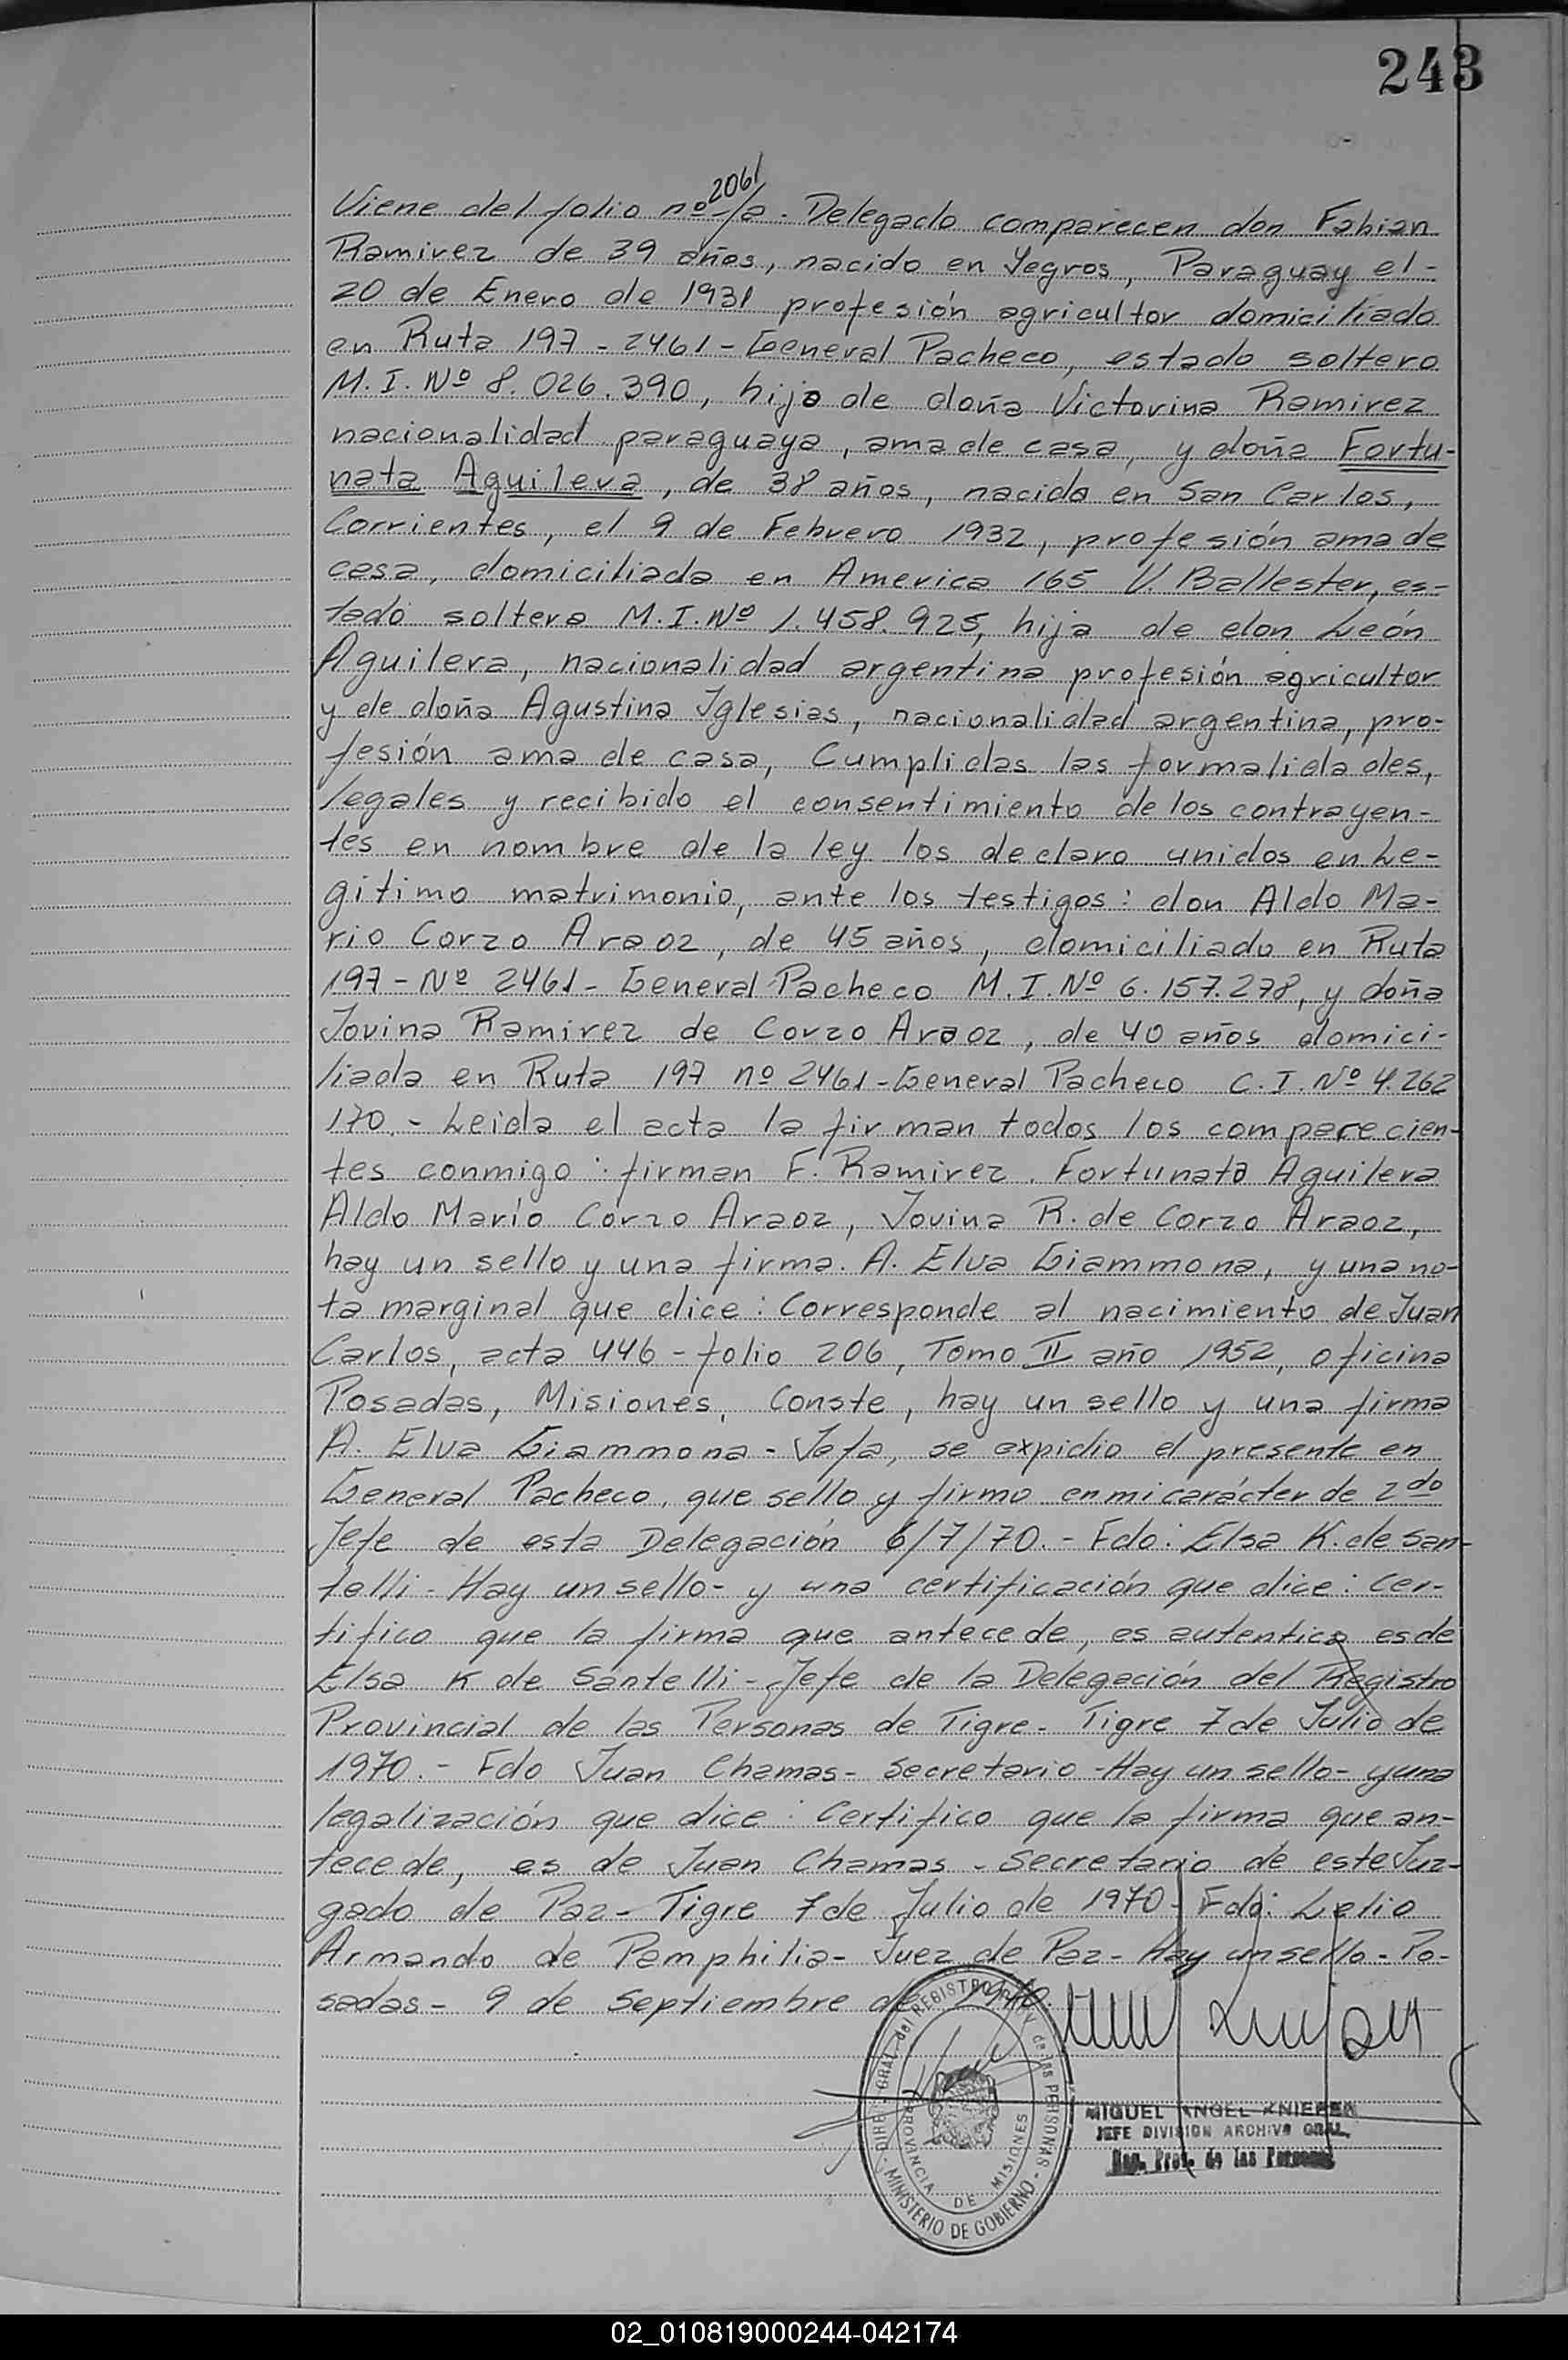 243
2061
Viene del folio nº -/a. Delegado comparecen don Fabian
Ramirez de 39 años, nacido en Yegros, Paraguay el-
20 de Enero de 1931 profesión agricultor domiciliado
en Ruta 197 - 2461 - General Pacheco, estado soltero
M. I. Nº 8.026.390, hijo de doña Victorina Ramirez
nacionalidad paraguaya, ama de casa, y doña Fortu-
nata Aguilera, de 38 años, nacida en San Carlos,
Corrientes, el 9 de Febrero 1932, profesión ama de
casa, domiciliada en America 165 V. Ballester, es-
tado soltera M.I. Nº 1.458.925, hija de don León
Aguilera, nacionalidad argentina profesión agricultor
y de doña Agustina Iglesias, nacionalidad argentina, pro-
fesión ama de casa, Cumplidas las formalidades,
legales y recibido el consentimiento de los contrayen-
tes en nombre de la ley los declaro unidos en Le-
gitimo matrimonio, ante los testigos: don Aldo Ma-
rio Corzo Araoz, de 45 años, domiciliado en Ruta
197 - Nº 2461 - General Pacheco M. I. Nº 6.157.278, y doña
Jovina Ramirez de Corzo Araoz, de 40 años domici-
liada en Ruta 197 nº 2461 - General Pacheco C. I. Nº 4.262
170. - Leida el acta la firman todos los comparecien-
tes conmigo: firman F. Ramirez. Fortunata Aguilera
Aldo Mario Corzo Araoz, Jovina R. de Corzo Araoz,
hay un sello y una firma. A. Elva Giammona, y una no-
ta marginal que dice: Corresponde al nacimiento de Juan
Carlos, acta 446 - folio 206, Tomo II año 1952, oficina
Posadas, Misiones, Conste, hay un sello y una firma
A. Elva Giammona - Jefa, se expidio el presente en
General Pacheco, que sello y firmo en mi carácter de 2do
Jefe de esta Delegación 6/7/70. - Fdo: Elsa K. de San-
telli - Hay un sello - y una certificación que dice: Cer-
tifico que la firma que antecede, es autentica es de
Elsa K de Santelli - Jefe de la Delegación del Registro
Provincial de las Personas de Tigre - Tigre 7 de Julio de
1970. - Fdo Juan Chamas - Secretario - Hay un sello - y una
legalización que dice: Certifico que la firma que an-
tecede, es de Juan Chamas - Secretario de este Juz-
gado de Paz - Tigre 7 de Julio de 1970 - Fdo: Lelio
Armando de Pamphilia - Juez de Paz - Hay un sello - Po-
sadas - 9 de Septiembre de 1970.
DIREC. GRAL. del REGISTRO PROV. de las PERSONAS - MINISTERIO DE GOBIERNO -
PROVINCIA DE MISIONES
MIGUEL ANGEL KNIEPER
JEFE DIVISION ARCHIVO GRAL.
Reg. Prov. de las Personas
02_010819000244-042174